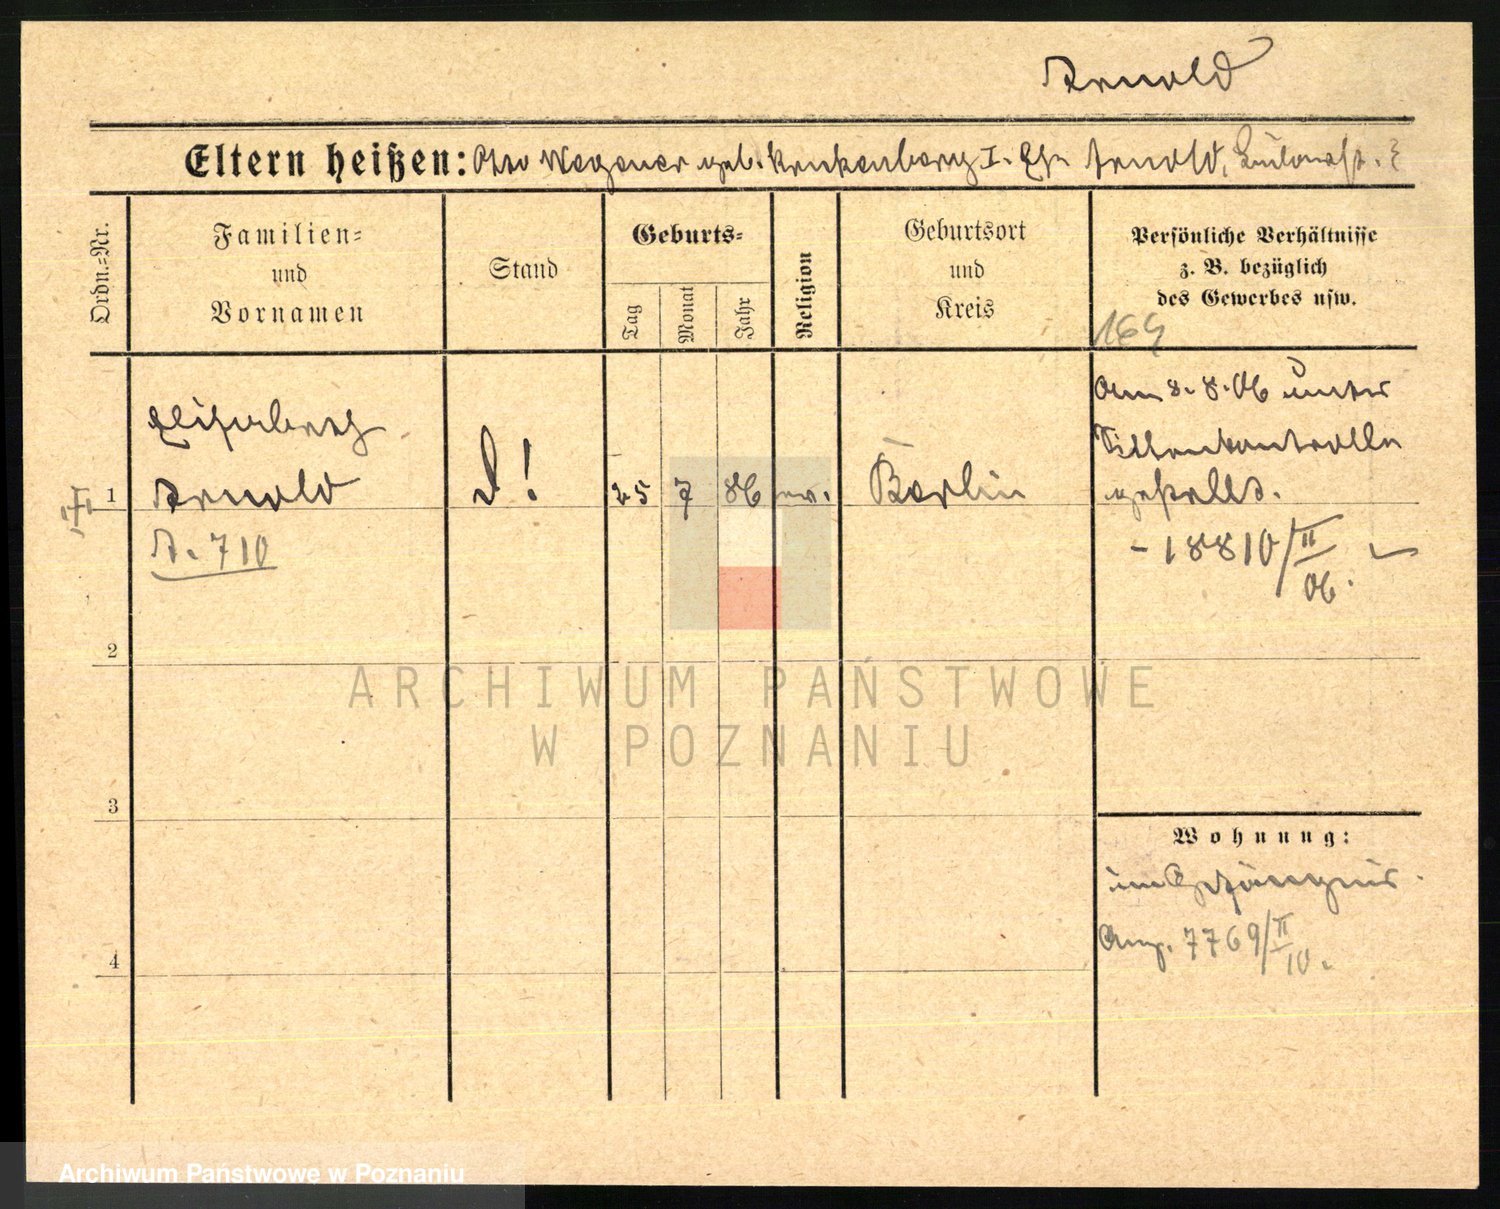 Arnold
Eltern heißen: Otto Wegener geb. Krukenberg I. Eh. Arnold,
Ordn.=Nr.
Familien=
und
Vornamen
Stand
Geburts=
Tag
Monat
Jahr
Religion
Geburtsort
und
Kreis
Persönliche Verhältnisse
z. B. bezüglich
des Gewerbes usw.
164
1
Elisabeth
Arnold
A. 710
25 7 86 ev.
Berlin
Am 8. 8. 06 unter
Sittenkontrolle
gestellt.
- 18810/II
06.
2
3
4
Wohnung:
im Gefängnis.
Ang. 7769/II
10.
ARCHIWUM PAŃSTWOWE
W POZNANIU
Archiwum Państwowe w Poznaniu